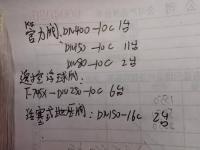 官方阀: DN400-10C 1台
DN150-10C 11台
DN80-10C 2台
遥控浮球阀:
F745X-DN250-10C 6台
活塞式 阀: DN150-16C 2台